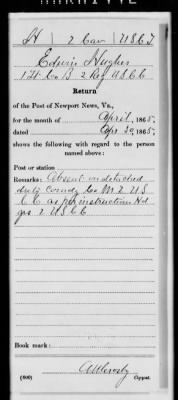 H | 2 Cav | U.S.C.T.
Edwin Hughes
1 Lt. Co. B 2 Reg U S C C
Return
of the Post of Newport News, Va.,
for the month of April, 1865;
dated Apr 30, 1865,
shows the following with regard to the person
named above:
Post or station
Remarks: Absent on detached
duty Comdg Co M 2 U S
C C as per instruction Hd
qrs 2 U S C C
Book mark:
(600) Copyist.